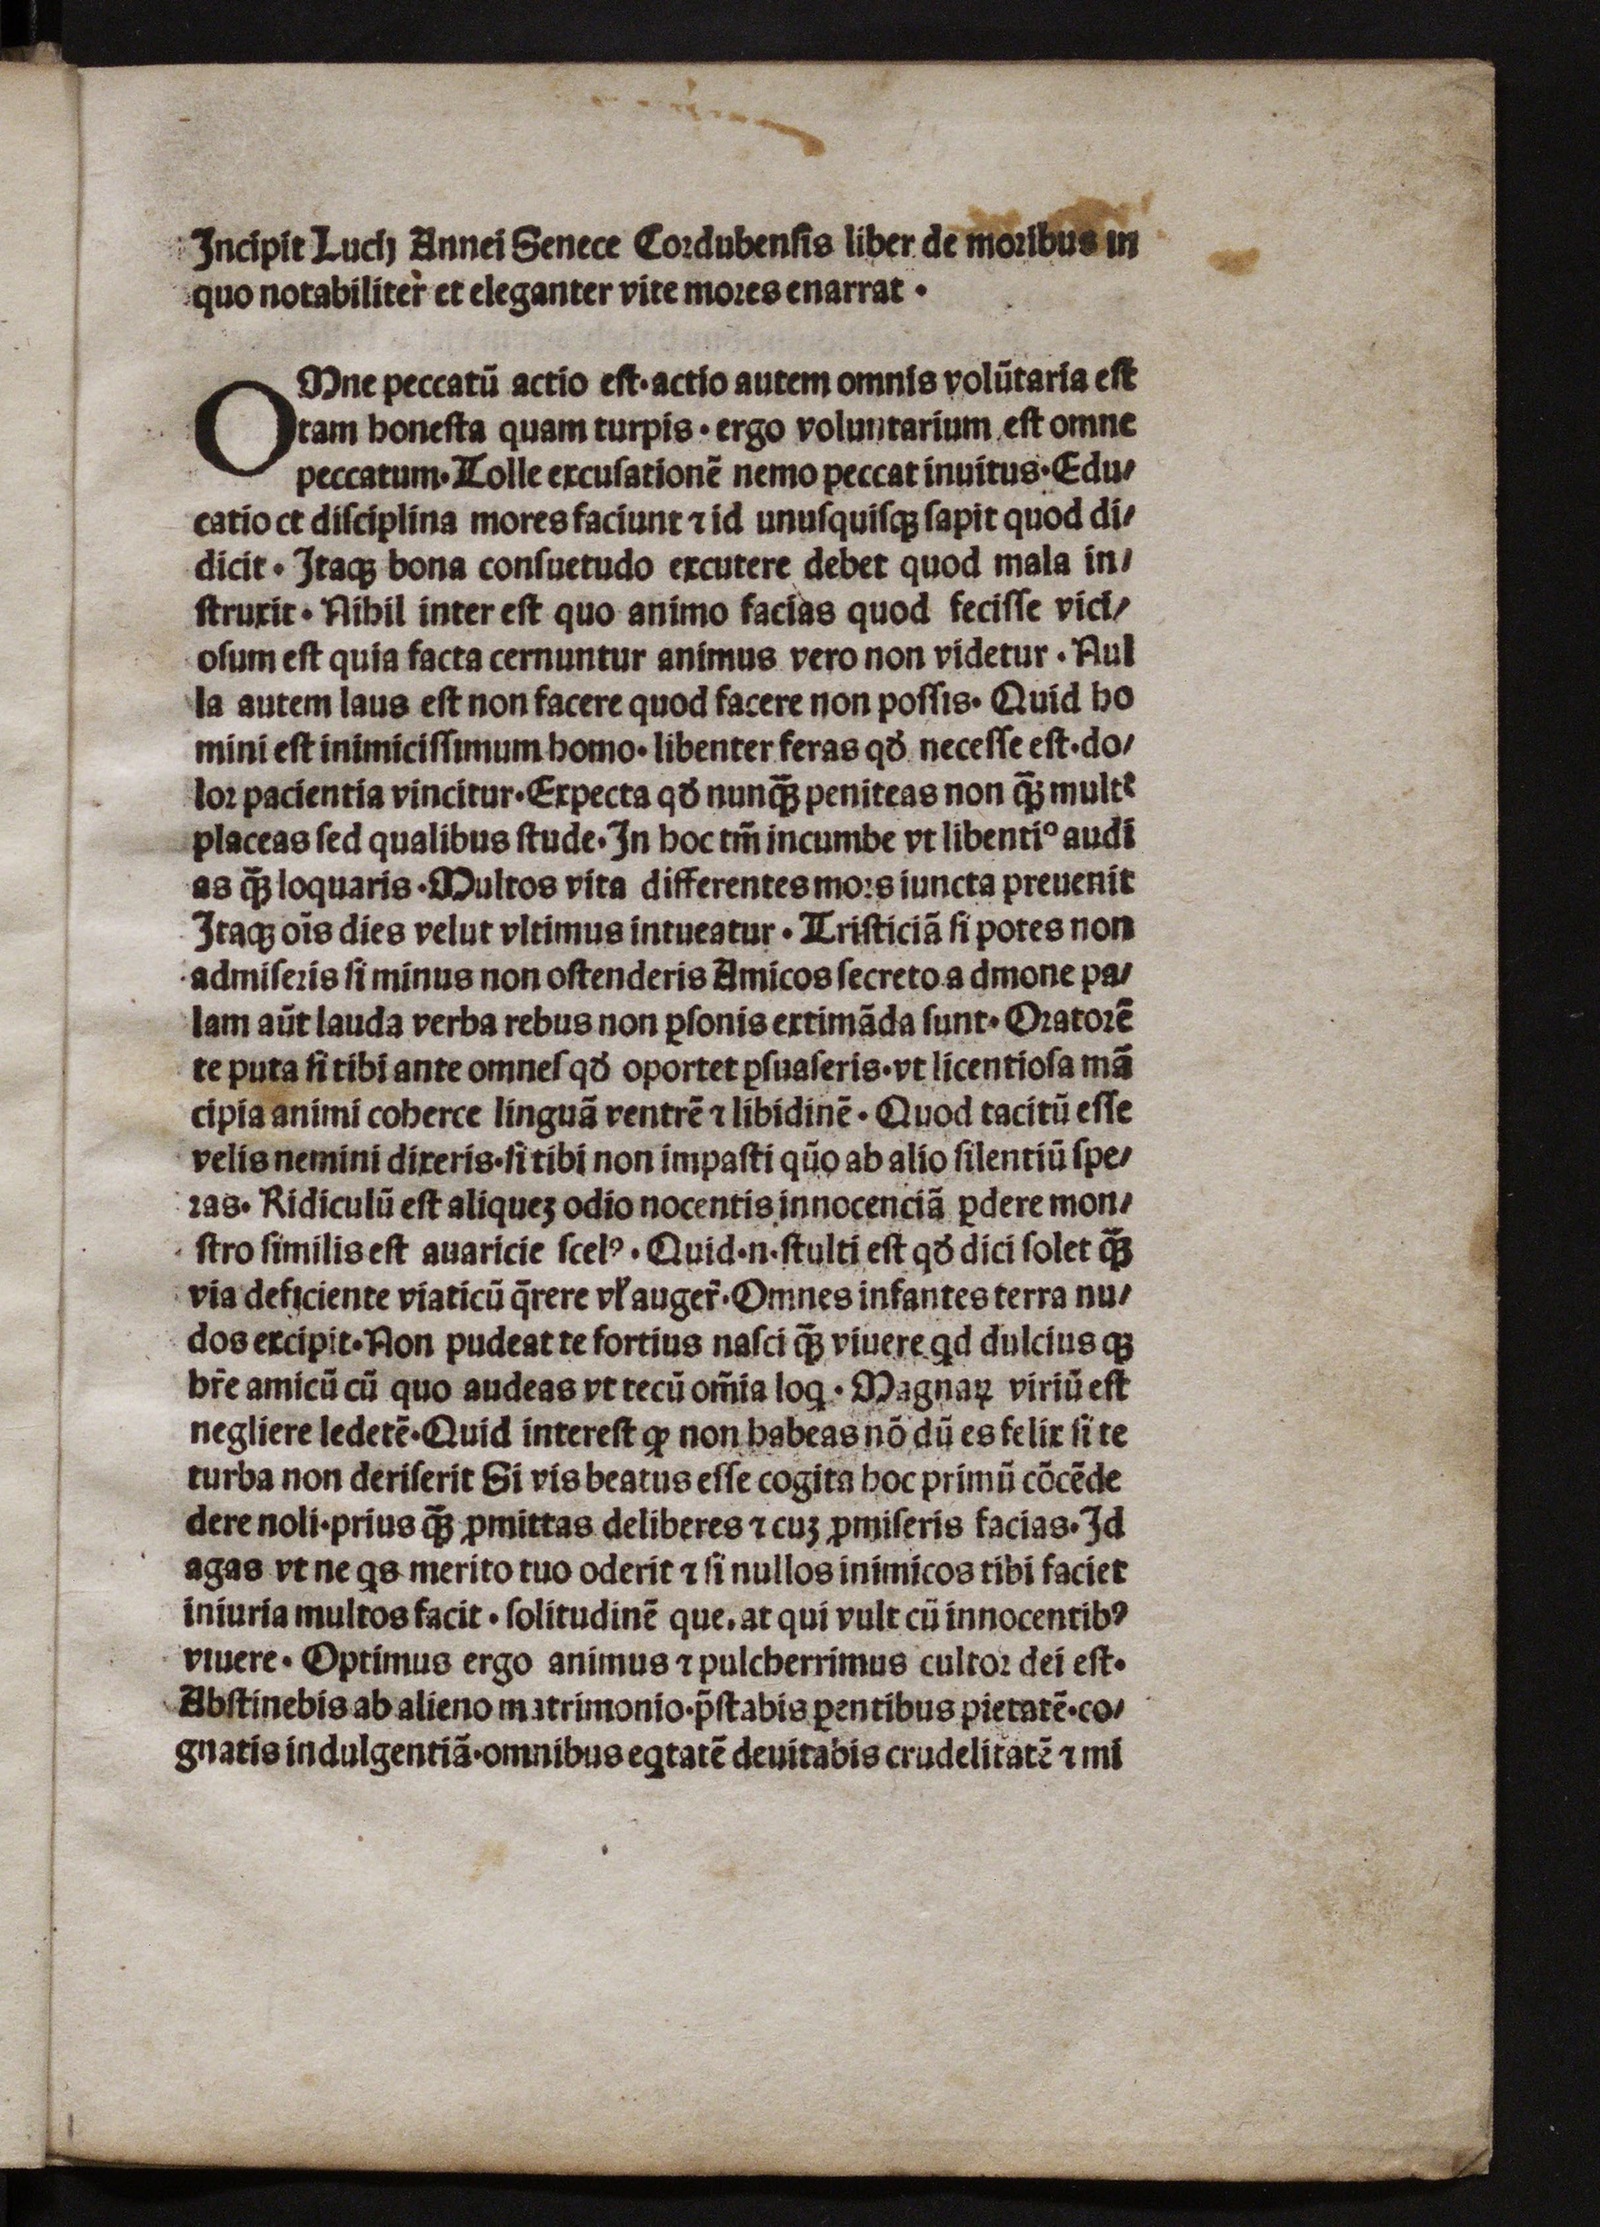 Incipit Lucij Annei Senece Cordubenſis liber de moribus in
quo notabiliter̀ et eleganter vite mores enarrat ·
OMne peccatū actio eſt·actio autem omnis volūtaria eſt
tam honeſta quam turpis · ergo voluntarium eſt omne
peccatum·Tolle excuſationē nemo peccat inuitus·Edu⸗
catio et diſciplina mores faciunt ⁊ id unuſquiſqꝫ ſapit quod di⸗
dicit · Itaqꝫ bona conſuetudo excutere debet quod mala in⸗
ſtruxit · Nihil inter eſt quo animo facias quod feciſſe vici⸗
oſum eſt quia facta cernuntur animus vero non videtur · Nul
la autem laus eſt non facere quod facere non poſſis· Quid ho
mini eſt inimiciſſimum homo· libenter feras qð neceſſe eſt·do⸗
lor pacientia vincitur·Expecta qð nunqꝫ̄ peniteas non qꝫ̄ multꝭ
placeas ſed qualibus ſtude·In hoc tm̄ incumbe vt libentiꝰ audi
as qꝫ̄ loquaris ·Multos vita differentes mors iuncta preuenit
Itaqꝫ oīs dies velut vltimus intueatur · Triſticiā ſi potes non
admiſeris ſi minus non oſtenderis Amicos ſecreto a dmone pa⸗
lam aūt lauda verba rebus non ꝑſonis extimāda ſunt· Oratorē
te puta ſi tibi ante omneſ qð oportet ꝑſuaſeris·vt licentioſa mā
cipia animi coherce linguā ventrē ⁊ libidinē · Quod tacitū eſſe
velis nemini dixeris·ſi tibi non impaſti qūo ab alio ſilentiū ſpe⸗
ras· Ridiculū eſt aliqueꝫ odio nocentis innocenciā ꝑdere mon⸗
ſtro ſimilis eſt auaricie ſcelꝰ · Quid·n·ſtulti eſt qð dici ſolet qꝫ̄
via deficiente viaticū q̄rere vl̓ auger̄·Omnes infantes terra nu⸗
dos excipit·Non pudeat te fortius naſci qꝫ̄ viuere qd dulcius qꝫ
br̄e amicū cū quo audeas vt tecū om̄ia loq · Magnaꝝ viriū eſt
negliere ledetē·Quid intereſt ꝙ non habeas nō dū es felix ſi te
turba non deriſerit Si vis beatus eſſe cogita hoc primū cōcēde
dere noli·prius qꝫ̄ ꝓmittas deliberes ⁊ cuꝫ ꝓmiſeris facias·Id
agas vt ne qs merito tuo oderit ⁊ ſi nullos inimicos tibi faciet
iniuria multos facit · ſolitudinē que.at qui vult cū innocentibꝰ
viuere· Optimus ergo animus ⁊ pulcherrimus cultor dei eſt·
Abſtinebis ab alieno matrimonio·p̄ſtabis ꝑentibus pietatē·co⸗
gnatis indulgentiā·omnibus eqtatē deuitabis crudelitatē ⁊ mi